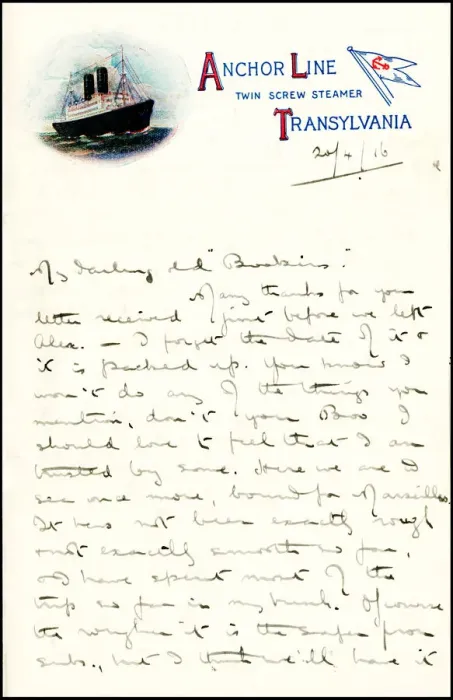 ANCHOR LINE
TWIN SCREW STEAMER
TRANSYLVANIA
20/4/16
My darling old "Bookins".
Many thanks for your
letter received just before we left
Alex. — I forget the date of it &
it is packed up. You know I
won't do any of the things you
mention, don't you Boo I
should love to feel that I am
trusted by some. Here we are I
sea once more, bound for Marseilles.
It has not been exactly rough
& not exactly smooth so far,
& I have spent most of the
trip so far in my bunk. Of course
the rougher it is the safer from
subs., but I think we'll have it